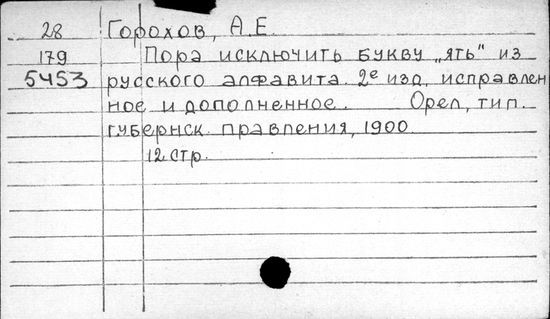 28 Горохов, А.Е.
179 Пора исключить букву „ять" из
5453 русского алфавита. 2е изд. исправлен
ное и дополненное. Орел, тип.
губернск. правления, 1900.
12 стр.